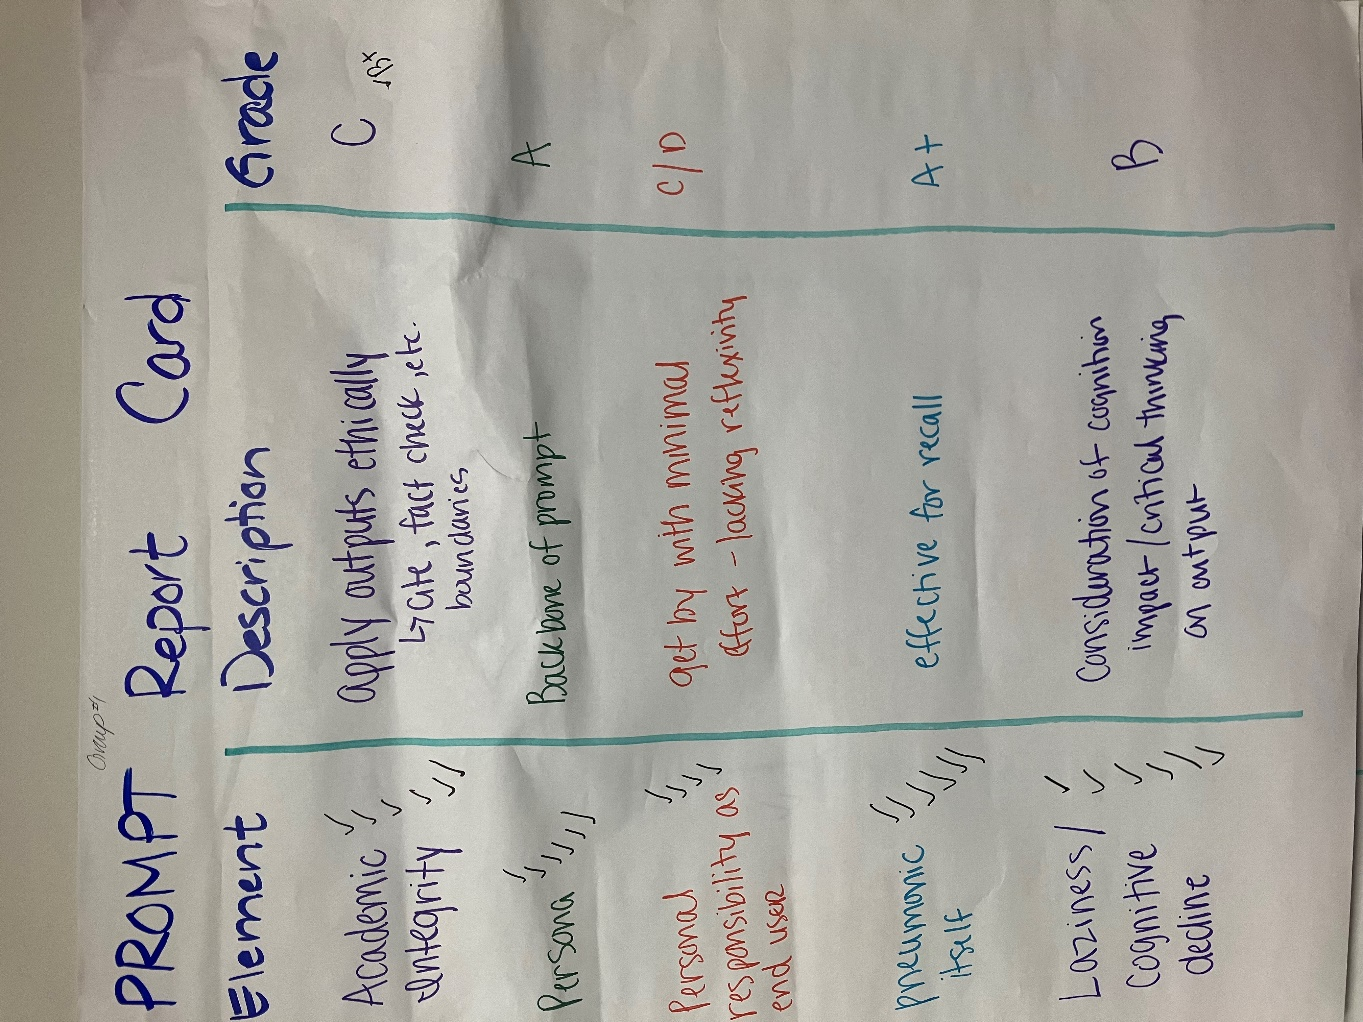 Group #1
PROMPT Report Card
Element Description Grade
Academic Integrity
apply outputs ethically
↳ cite, fact check, etc.
boundaries
C
Persona
Backbone of prompt
A
Personal
responsibility as
end user
get by with minimal
effort - lacking reflexivity
C/D
pneumonic
itself
effective for recall
A+
Laziness/
cognitive
decline
Consideration of cognition
impact/critical thinking
on output
B